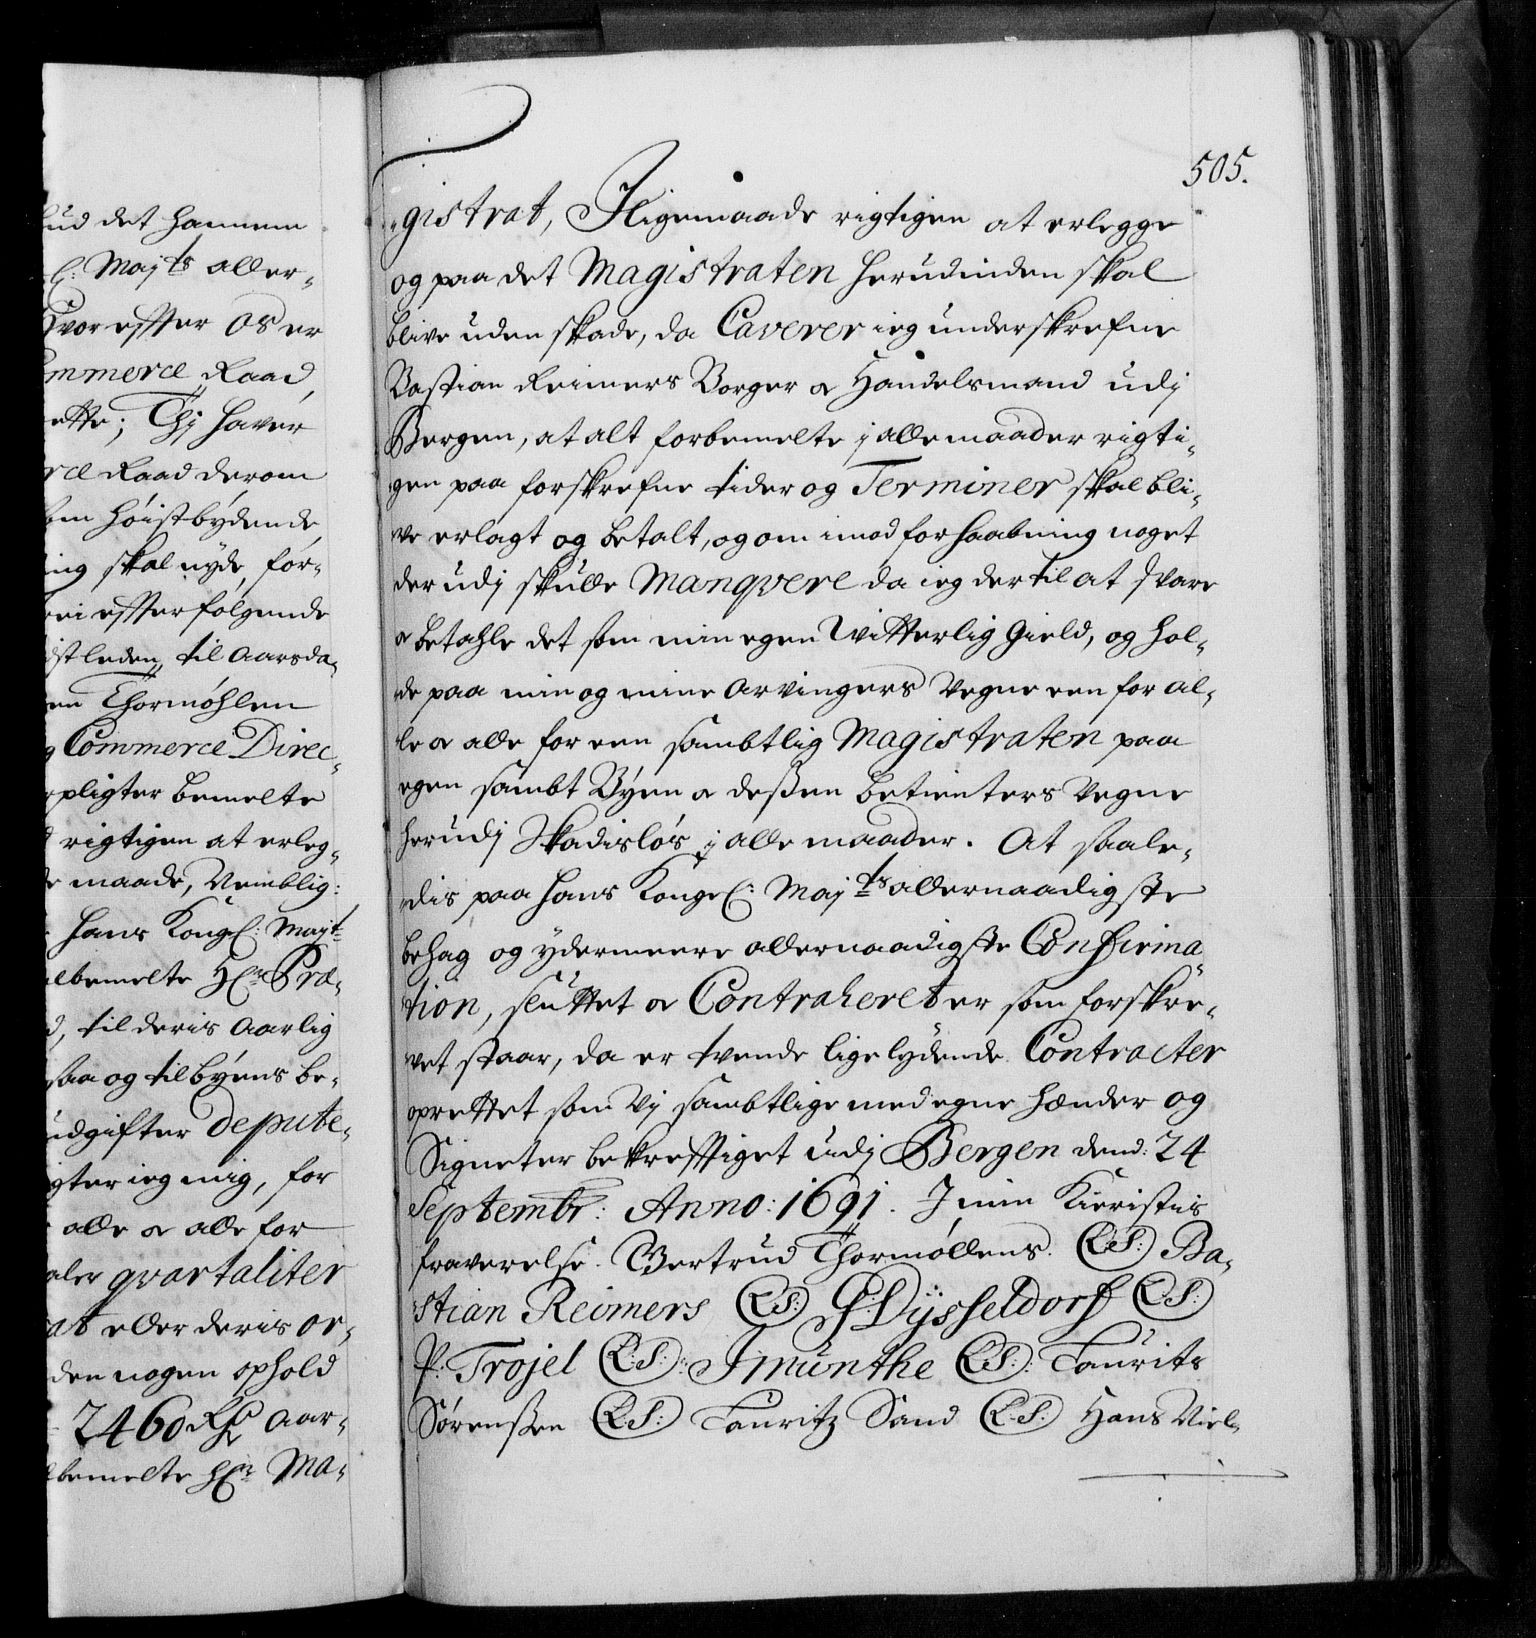 ud det hannem
l: Majts aller-
hvor effter os er
ommerce Raad
ette; Thj haver
rce Raad derom
høistbydende
ing skal nyde, for-
ei effterfølgende
stleden, til Aarsda-
en Thormøhlen
g Commerce Direc-
rpligter bemelte
rigtigen at erleg-
maade, Nemblig:
Hans Kongl: Mayt
lbemelte Hr. Præ-
d, til deris Aarlig
saa og til byens be-
udgifter depute-
gter ieg mig, for
alle & alle for
aler qvartaliter
at eller deris or-
den nogen ophold
2460 Rdr Aar-
lbemelte Hr. Ma-
505.
-gistrat, Iligemaade rigtigen at erlegge
og paa det Magistraten herudinden skal
blive uden skade, da Caverer ieg underskrefne
Bastian Reimers Borger & Handelsmand udj
Bergen, at alt forbemelte j alle maader rigti-
gen paa forskrefne tider og Terminer skal bli-
ve erlagt og betalt, og om imod forhaabning noget
der udj skulle Manqvere da ieg der til at svare
& betahle det som min egen Witterlig Gield, og hol-
de paa min og mine Arvingers Vegne een for al-
le & alle for een sambtlig Magistraten paa
egen sambt Byen & deßen betienters Vegne
herudj skadisløs j alle maader. At saale-
dis paa Hans Kongel: Majts allernaadigste
behag og ydermeere allernaadigste Confirma-
tion, sluttet & Contraheret er som forskre-
vet staar, da er tvende lige lydende Contracter
oprettet som Vj sambtlige med egne hænder og
Signeter bekrefftiget udj Bergen dend: 24
Septembr: Anno: 1691. I min Kieristis
fraverelse. Gertrud Thormøllens. (L.S:) Ba-
stian Reimers (L.S:) P: Dysseldorf (L.S:)
P. Trojel (L:S:) J Munthe (L.S:) Laurits
Sørenßen (L.S:) Lauritz Sand (L.S:) Hans Viel-